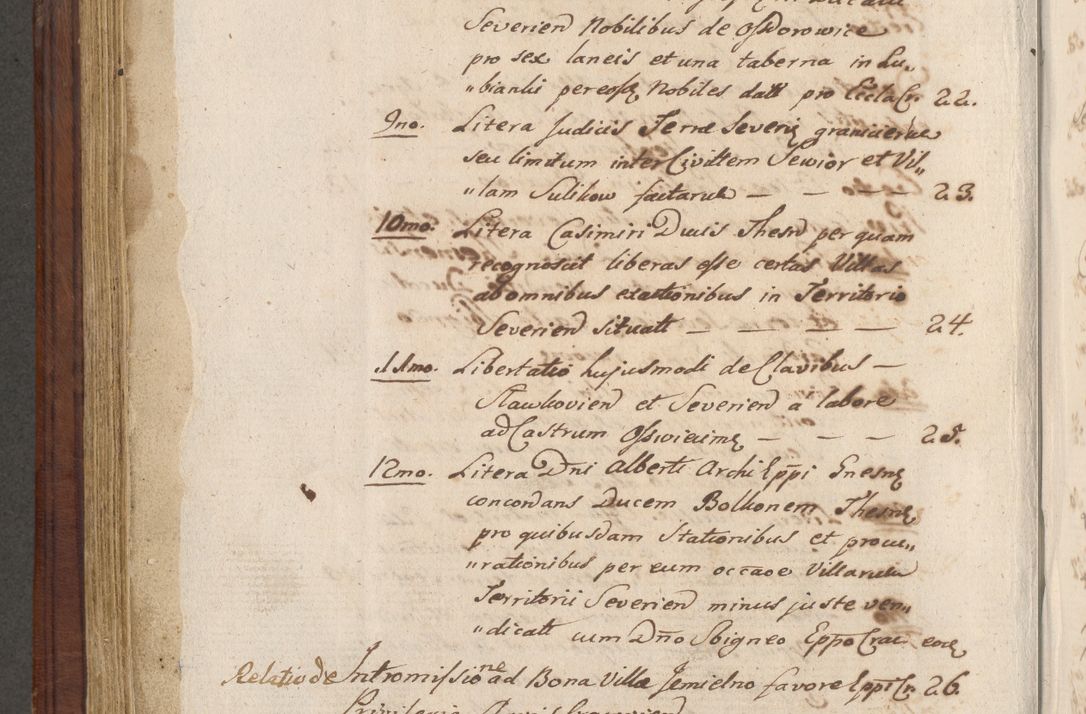 Severien Nobilibus de Ossdorowice
pro sex laneis et una taberna in Lu„
„bianki per eosdem Nobiles datt pro Eccla Cr. 22.
9no. Litera Judicis Terræ Severiens granicierum
seu limitum inter Civittem Sewior et Vil„
„lam Sulikow factarum — — — — 23.
10mo. Litera Casimiri Ducis Thesn per quam
recognoscit liberas esse certas Villas
ab omnibus exactionibus in Territorio
Severien situatt — — — — — 24.
11mo. Libertatio hujusmodi de Clavibus —
Slawkovien et Severien a labore
ad Castrum Osswiecims — — — — 25.
12mo. Litera Dni Alberti Archi Eppi Gnesns
concordans Ducem Bolkonem Thesns
pro quibusdam Stationibus et procu„
„rationibus per eum occaoe Villarum
Territorii Severien minus juste ven„
„dicatt cum Dno Sbigneo Eppo Crac
Relatio de Intromissione ad Bona Villæ Jemielno favore Eppi Cr. 26.